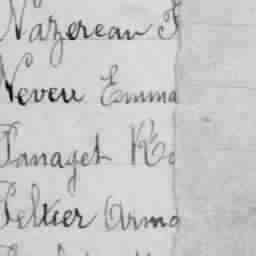 Nazereau F
Neveu Emma
Panaget
Peltier Arma